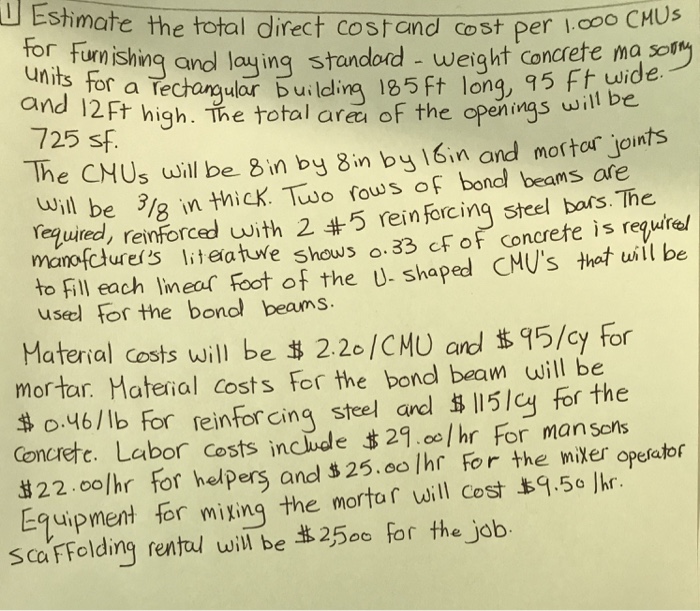 1 Estimate the total direct cost and cost per 1.000 CMUs
for furnishing and laying standard - weight concrete ma sonry
units for a rectangular building 185 ft long, 95 ft wide.
and 12 Ft high. The total area of the openings will be
725 sf.
The CMUs will be 8in by 8in by 16in and mortar joints
will be 3/8 in thick. Two rows of bond beams are
required, reinforced with 2 #5 reinforcing steel bars. The
manafcturer's literature shows 0.33 cf of concrete is required
to fill each linear foot of the U-shaped CMU's that will be
used for the bond beams.
Material costs will be $ 2.20/CMU and $95/cy for
mortar. Material costs for the bond beam will be
$ 0.46/lb for reinforcing steel and $115/cy for the
concrete. Labor costs include $29.00/hr for mansons
$22.00/hr for helpers, and $25.00/hr for the mixer operator
Equipment for mixing the mortar will cost $9.50/hr.
scaffolding rental will be $2,500 for the job.